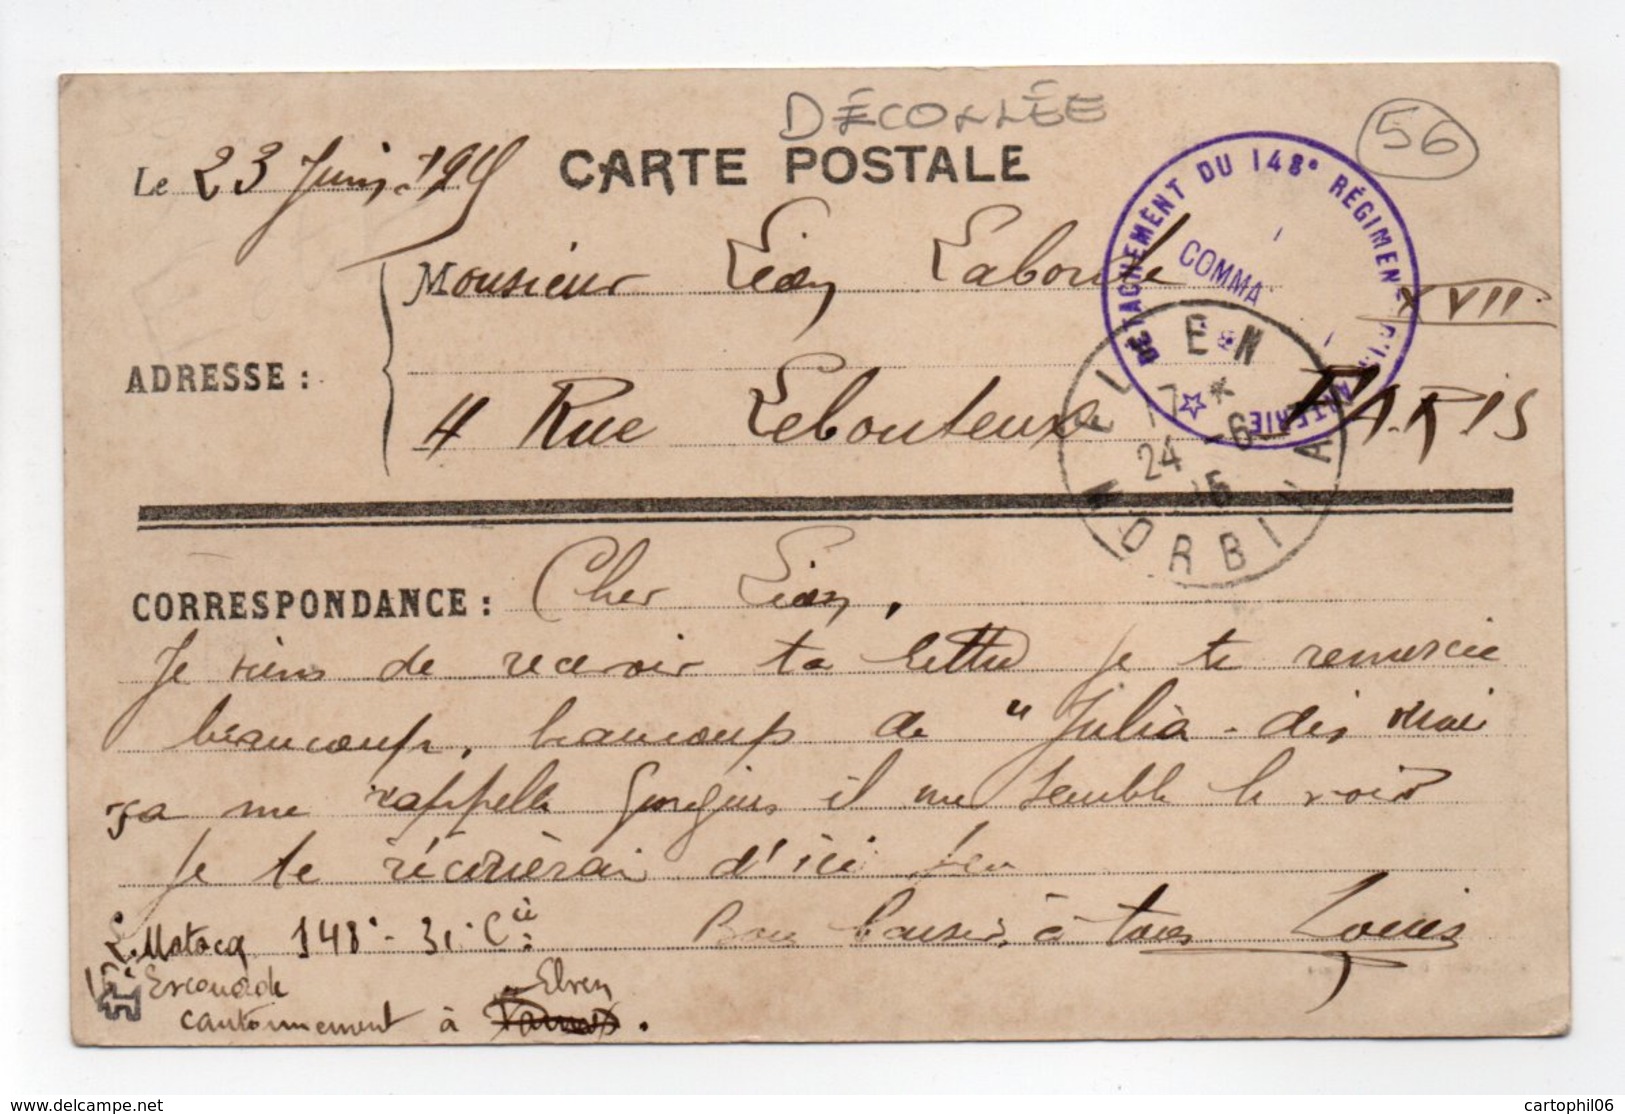 DÉCOLLÉE
56
Le 23 Juin 1915
CARTE POSTALE
DÉTACHEMENT DU 148e RÉGIMENT D'INFANTERIE
COMMA
Monsieur Léon Laborde
XVII
ADRESSE :
4 Rue Lebouteux PARIS
ELVEN
17 *
24 -6
15
MORBIHAN
CORRESPONDANCE : Cher Léon,
Je viens de recevoir ta lettre je te remercie
beaucoup, beaucoup de "Julia - dis moi
ça me rappelle il me semble le voir
Je te récrierai d'ici peu
Bons baisers à tous Louis
L. Matocq 148e - 31e Cie
Escouade
cantonnement à Elven
www.delcampe.net
cartophil06